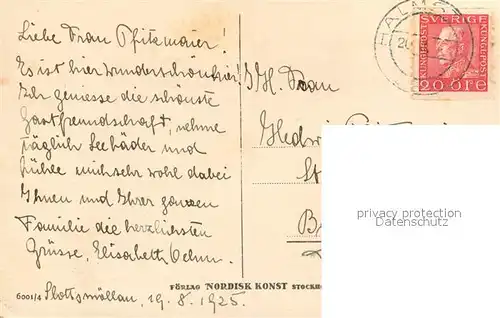 Liebe Frau Pfitzmaier!
Es ist hier wunderschön hier!
Ich geniesse die schönste
Gastfreundschaft, nehme
täglich Seebäder und
fühle mich sehr wohl dabei
Ihnen und Ihrer ganzen
Familie die herzlichsten
Grüsse, Elisabeth
Slottsmöllan, 19.8.1925.
6001/4
FÖRLAG NORDISK KONST STOCKHO
I.H. Frau
Hedwig
St
B
HALMST
20
SVERIGE
KUNGL.POST
KUNGL.POST
20 ÖRE
privacy protection
Datenschutz